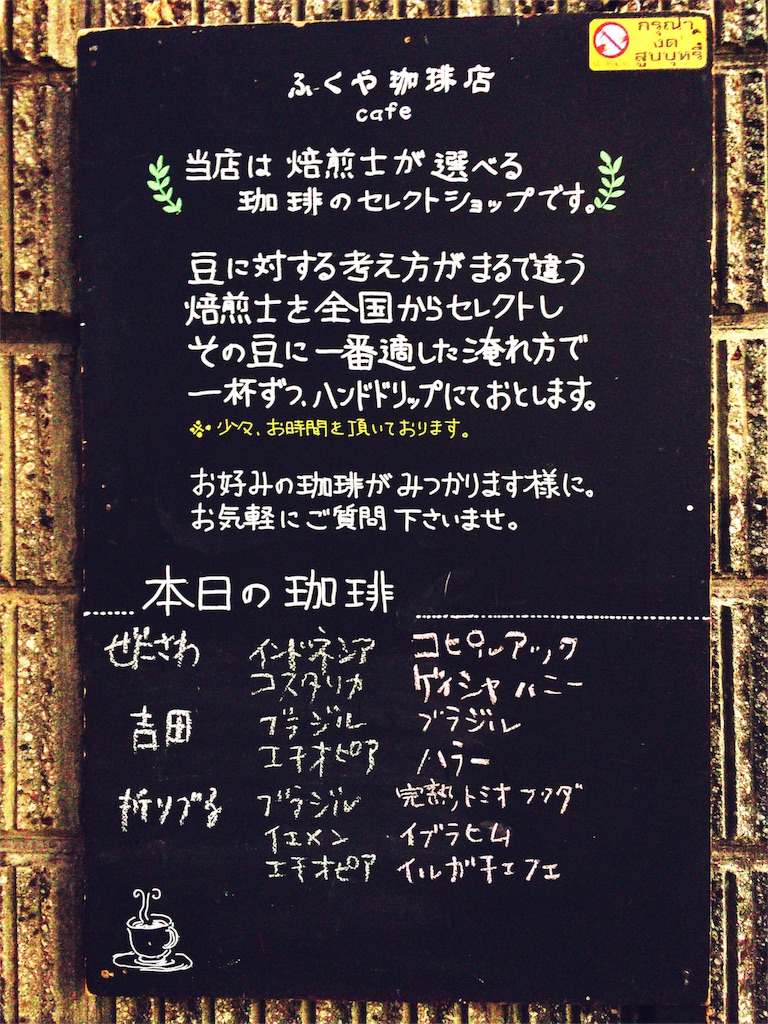 กรุณา
งด
สูบบุหรี่
ふくや珈琲店
cafe
当店は 焙煎士が 選べる
珈琲のセレクトショップです。
豆に対する考え方がまるで違う
焙煎士を全国からセレクトし
その豆に一番適した淹れ方で
一杯ずつ、ハンドドリップにておとします。
※少々、お時間を頂いております。
お好みの珈琲がみつかります様に。
お気軽にご質問下さいませ。
本日の珈琲
ぜにさわ インドネシア コピルアック
コスタリカ ゲイシャ ハニー
吉田 ブラジル ブラジル
エチオピア ハラー
ブラジル 完熟
イエメン イブラヒム
エチオピア イルガチェフェ